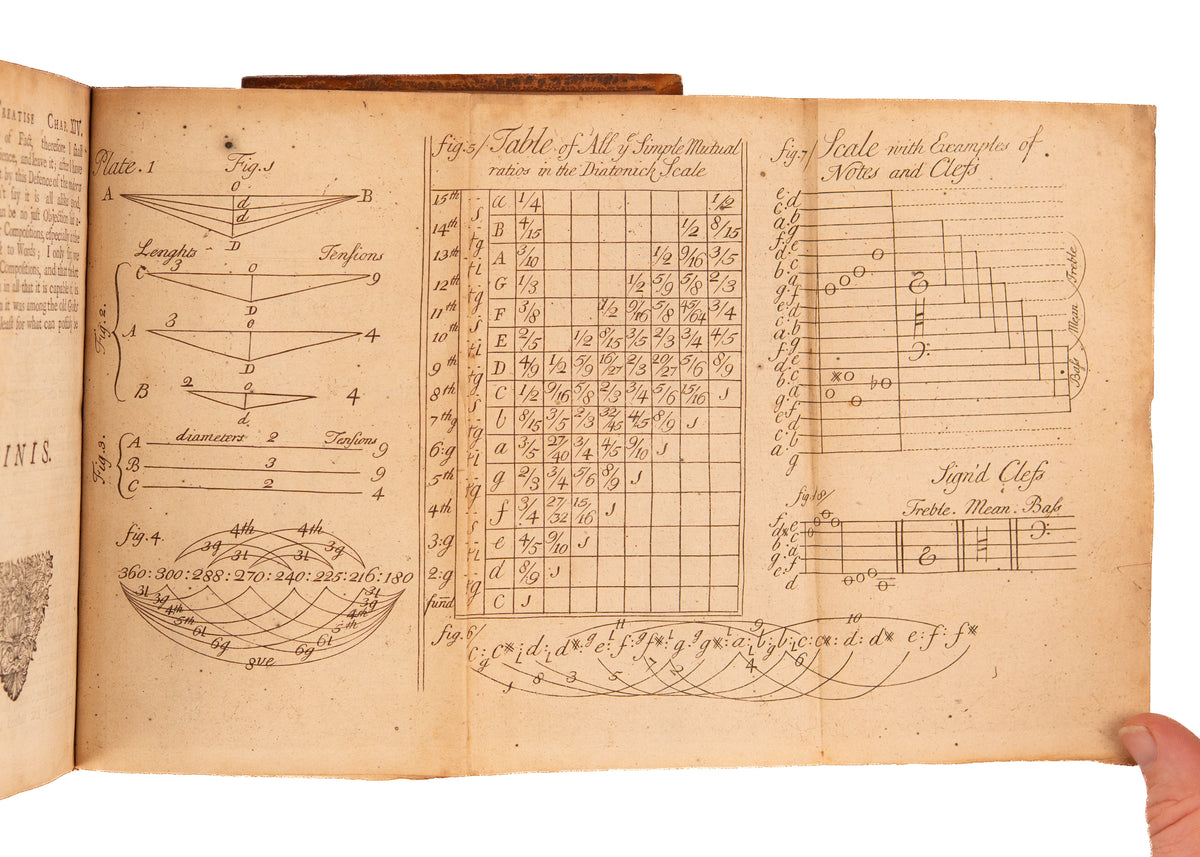 TREATISE CHAP. XIV.
of Fact, therefore I shall
and leave it; after I have
by this Defence of the
say it is all alike good,
be no just Objection
Compositions, especially
to Words; I only
Compositions, and that
in all that it is capable
it was among the old
for what can possibly be
INIS.
Plate. 1
Fig. 1
A O B
d
d
D
Lenghts Tensions
Fig. 2.
C 3 O 9
D
A 3 O 4
D
B 2 o 4
d
Fig. 3.
diameters Tensions
A 2 9
B 3 9
C 2 4
fig. 4.
4th 4th
3g 3l 3l 3g
360:300:288:270:240:225:216:180
3l 3l
3g 3g
4th 4th
5th 5th
6l 6l
6g 6g
8ve
fig. 5/ Table of All ye Simple Mutual
ratios in the Diatonick Scale
15th a 1/4 1/2
14th B 4/15 1/2 8/15
13th A 3/10 1/2 9/16 3/5
12th G 1/3 1/2 5/9 5/8 2/3
11th F 3/8 1/2 9/16 5/8 45/64 3/4
10th E 2/5 1/2 8/15 3/5 2/3 3/4 4/5
9th D 4/9 1/2 5/9 16/27 2/3 20/27 5/6 8/9
8th C 1/2 9/16 5/8 2/3 3/4 5/6 15/16 1
7th g b 8/15 3/5 2/3 32/45 4/5 8/9 1
6:g a 3/5 27/40 3/4 4/5 9/10 1
5th g 2/3 3/4 5/6 8/9 1
4th f 3/4 27/32 15/16 1
3:g e 4/5 9/10 1
2:g d 8/9 1
fund C 1
fig. 6/
11 9 10
c: c*: d: d*: e: f: f*: g: g*: a: b: b: c: c*: d: d* e: f: f*
1 8 3 5 7 2 4 6
fig. 7/ Scale with Examples of
Notes and Clefs
e d
c b
a g
f e
d c
b a
g f
e d
c b
a g
f e
d c
b a
g f
e d
c b
a
g
Treble
Mean
Bass
Sign'd Clefs
fig. 8/
Treble. Mean. Bass
f e
d* c
b a
g f
e d